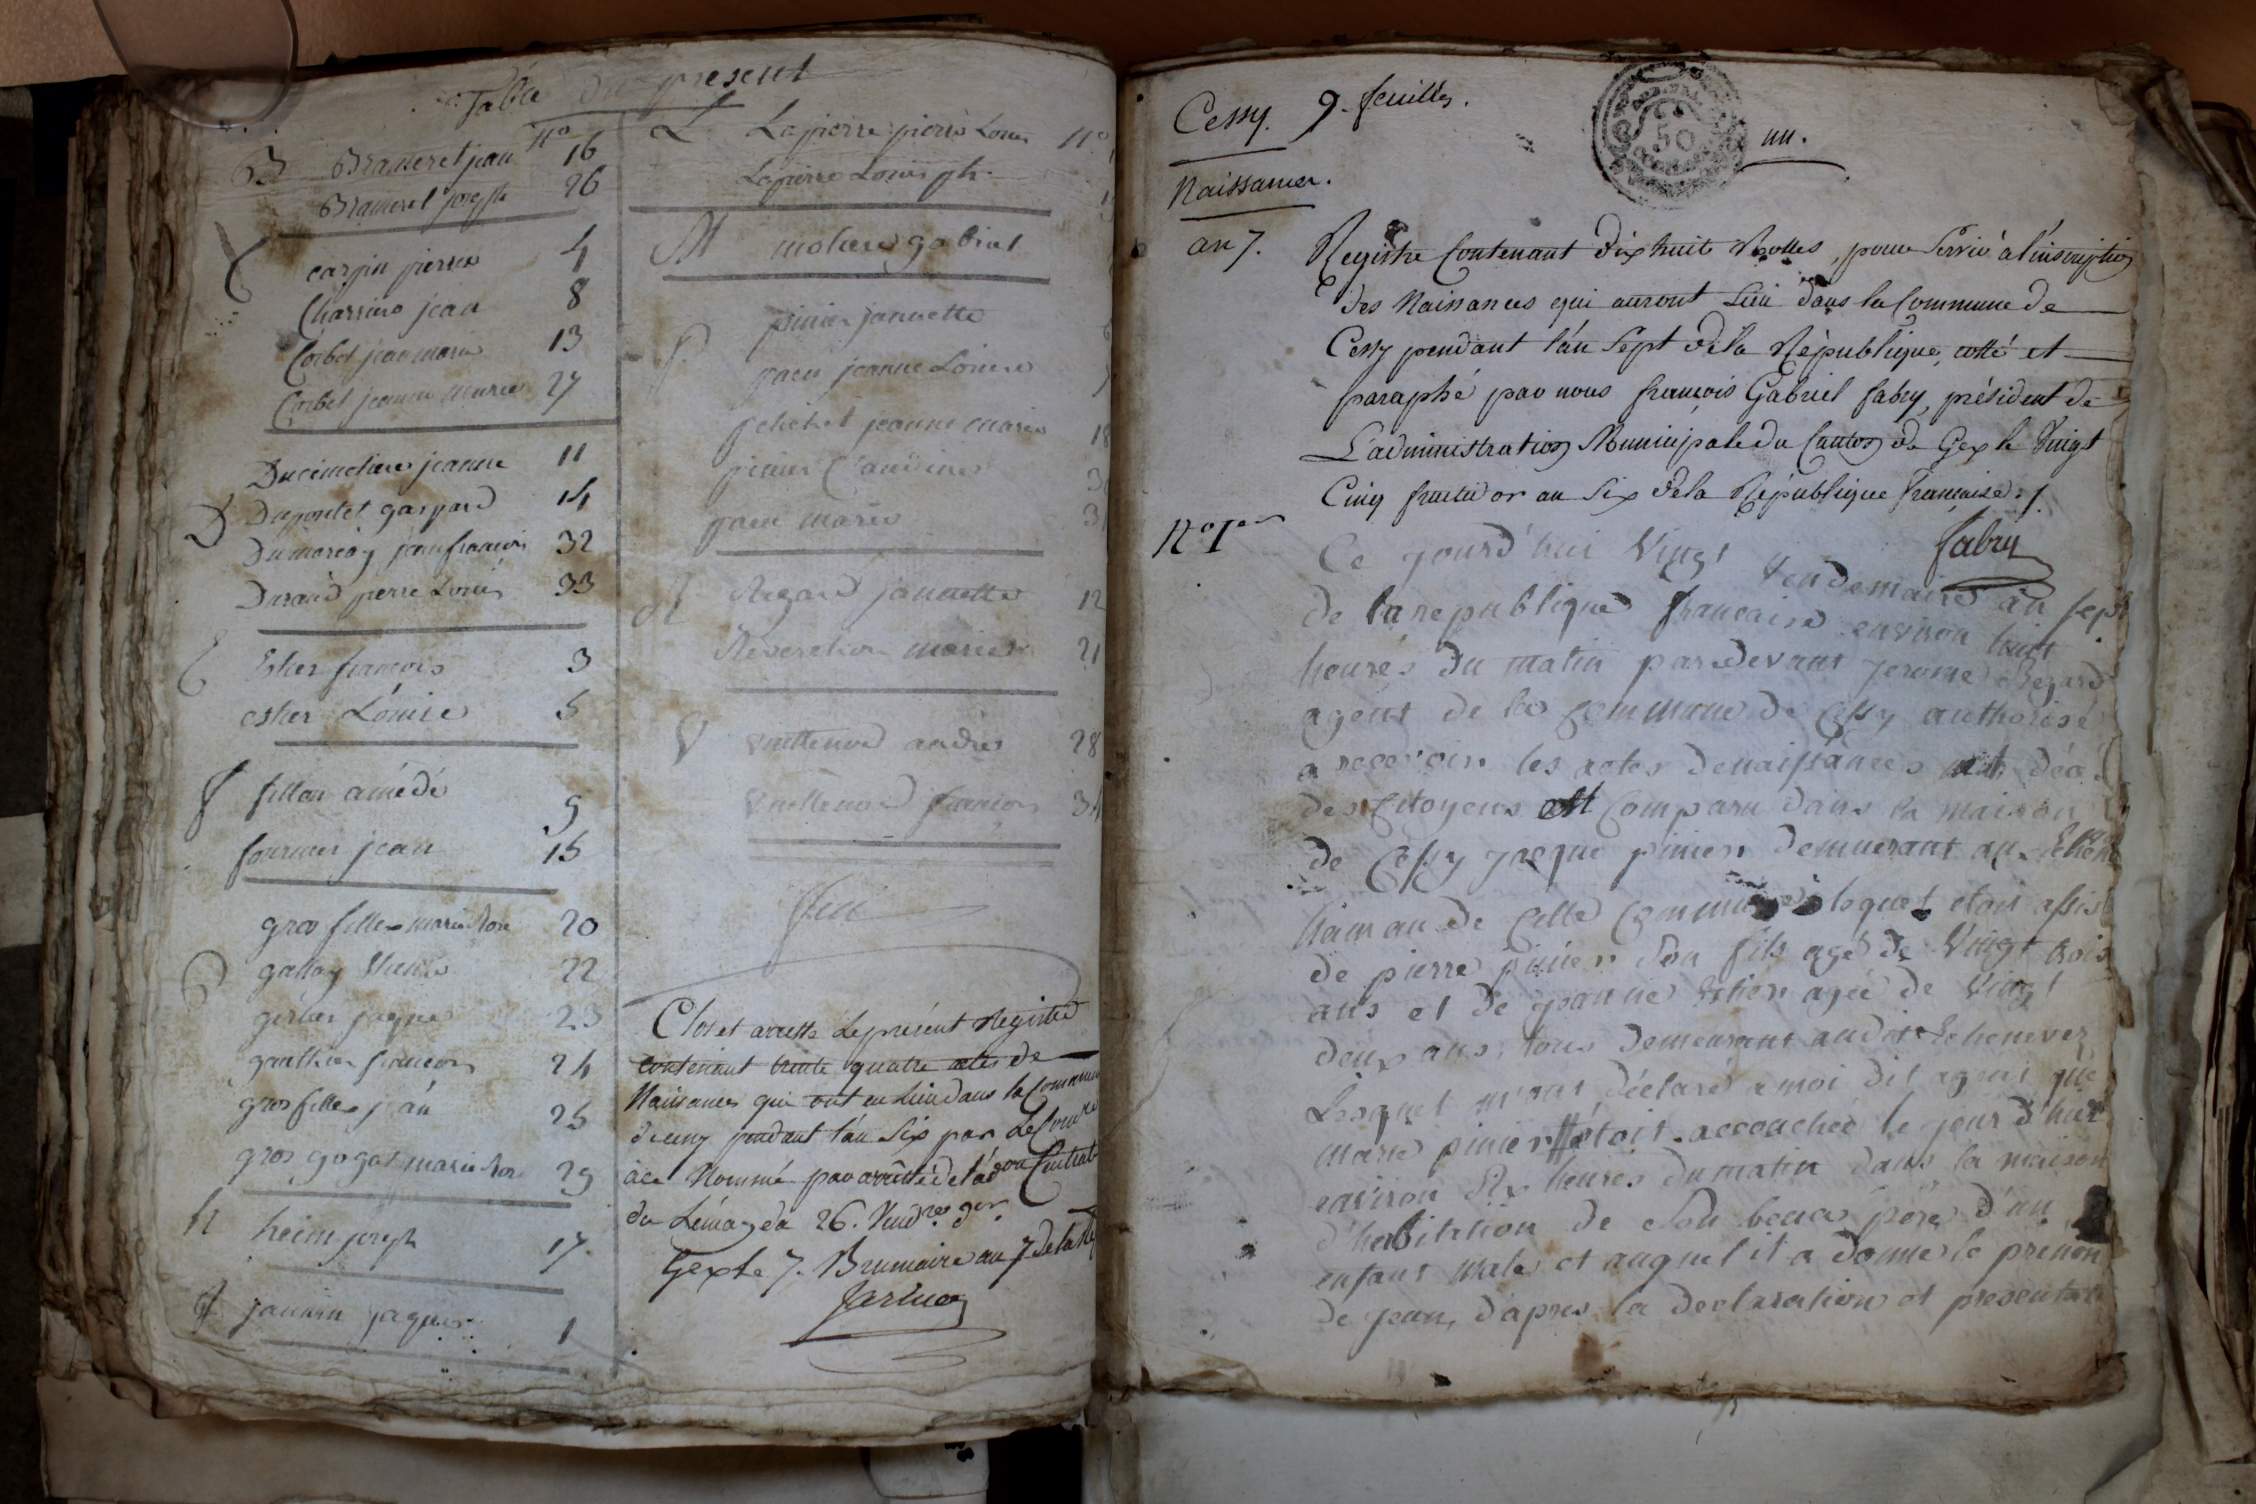 Table du present
N°
B Brameret jean 16
Brameret joseph 26
C carpin pierre 4
Charrine jean 8
Corbet jean marie 13
Corbet jeanne marie 27
Ducimetiere jeanne 11
D Dupontet gaspard 14
Dumarcay jean francois 32
Durand pierre Louis 33
E Esher francois 3
esher Louise 5
f fillon amédé 9
fournier jean 15
gros fillex marie Rose 20
G 22
gerber jaque 23
gauthier francois 24
gros fillex jean 25
gros gogat marie Rose 29
h heim joseph 17
J jannin jaques 1
L Lapierre pierre Louis N°
Lapierre Louis ph.
M moliere gabriel
pinier jannette
P pacu jeanne Louise
pelichet jeanne marie 18
pinier Claudine
pacu marie
R Regard jannette 12
Reverchon marie 21
V vuillermod andré 28
vuillermod francois 34
fin
Clos et arretté Le présent Registre
contenant trente quatre actes de
Naissances qui ont eu Lieu dans la Commune
de cessy pendant l'an Six par Le Comre
à ce Nommé par arrêtté de l'adon Centrale
du Léman du 26. Vendre. der.
Gex le 7. Brumaire an 7 de la Rep
Cessy. 9. feuilles.
50
un.
Naissances.
an 7. Registre Contenant dix huit Rolles, pour Servir à l'inscription
des Naissances qui auront Lieu dans la Commune de
Cessy pendant l'an Sept de la République, cotté et
paraphé par nous françois Gabriel fabry, président de
L'administration Municipale du Canton de Gex le Vingt
Cinq fructidor an Six de la République française ./.
fabry
N° 1er
Ce jourd'hui Vingt Vendemaire an sept
de la republique francaise environ huit
heures du matin pardevant jerome Regard
agent de la commune de Cessy authorisé
a recevoir les actes de naissances et déc
des Citoyens est Comparu dans la maison
de Cessy jacque pinier demeurant au
hameau de cette Commune lequel etoit assis
de pierre pinier son fils agé de Vingt trois
ans et de jeanne Esher agée de Vingt
deux ans tous demeurant audit Echenever
Lesquel m'ont déclaré a moi dit agent que
marie pinier étoit accouchée le jour d'hier
environ dix heures du matin dans la maison
d'habitation de son beau père d'un
enfant male et auquel il a donné le prénom
de jean, d'apres la declaration et presentat